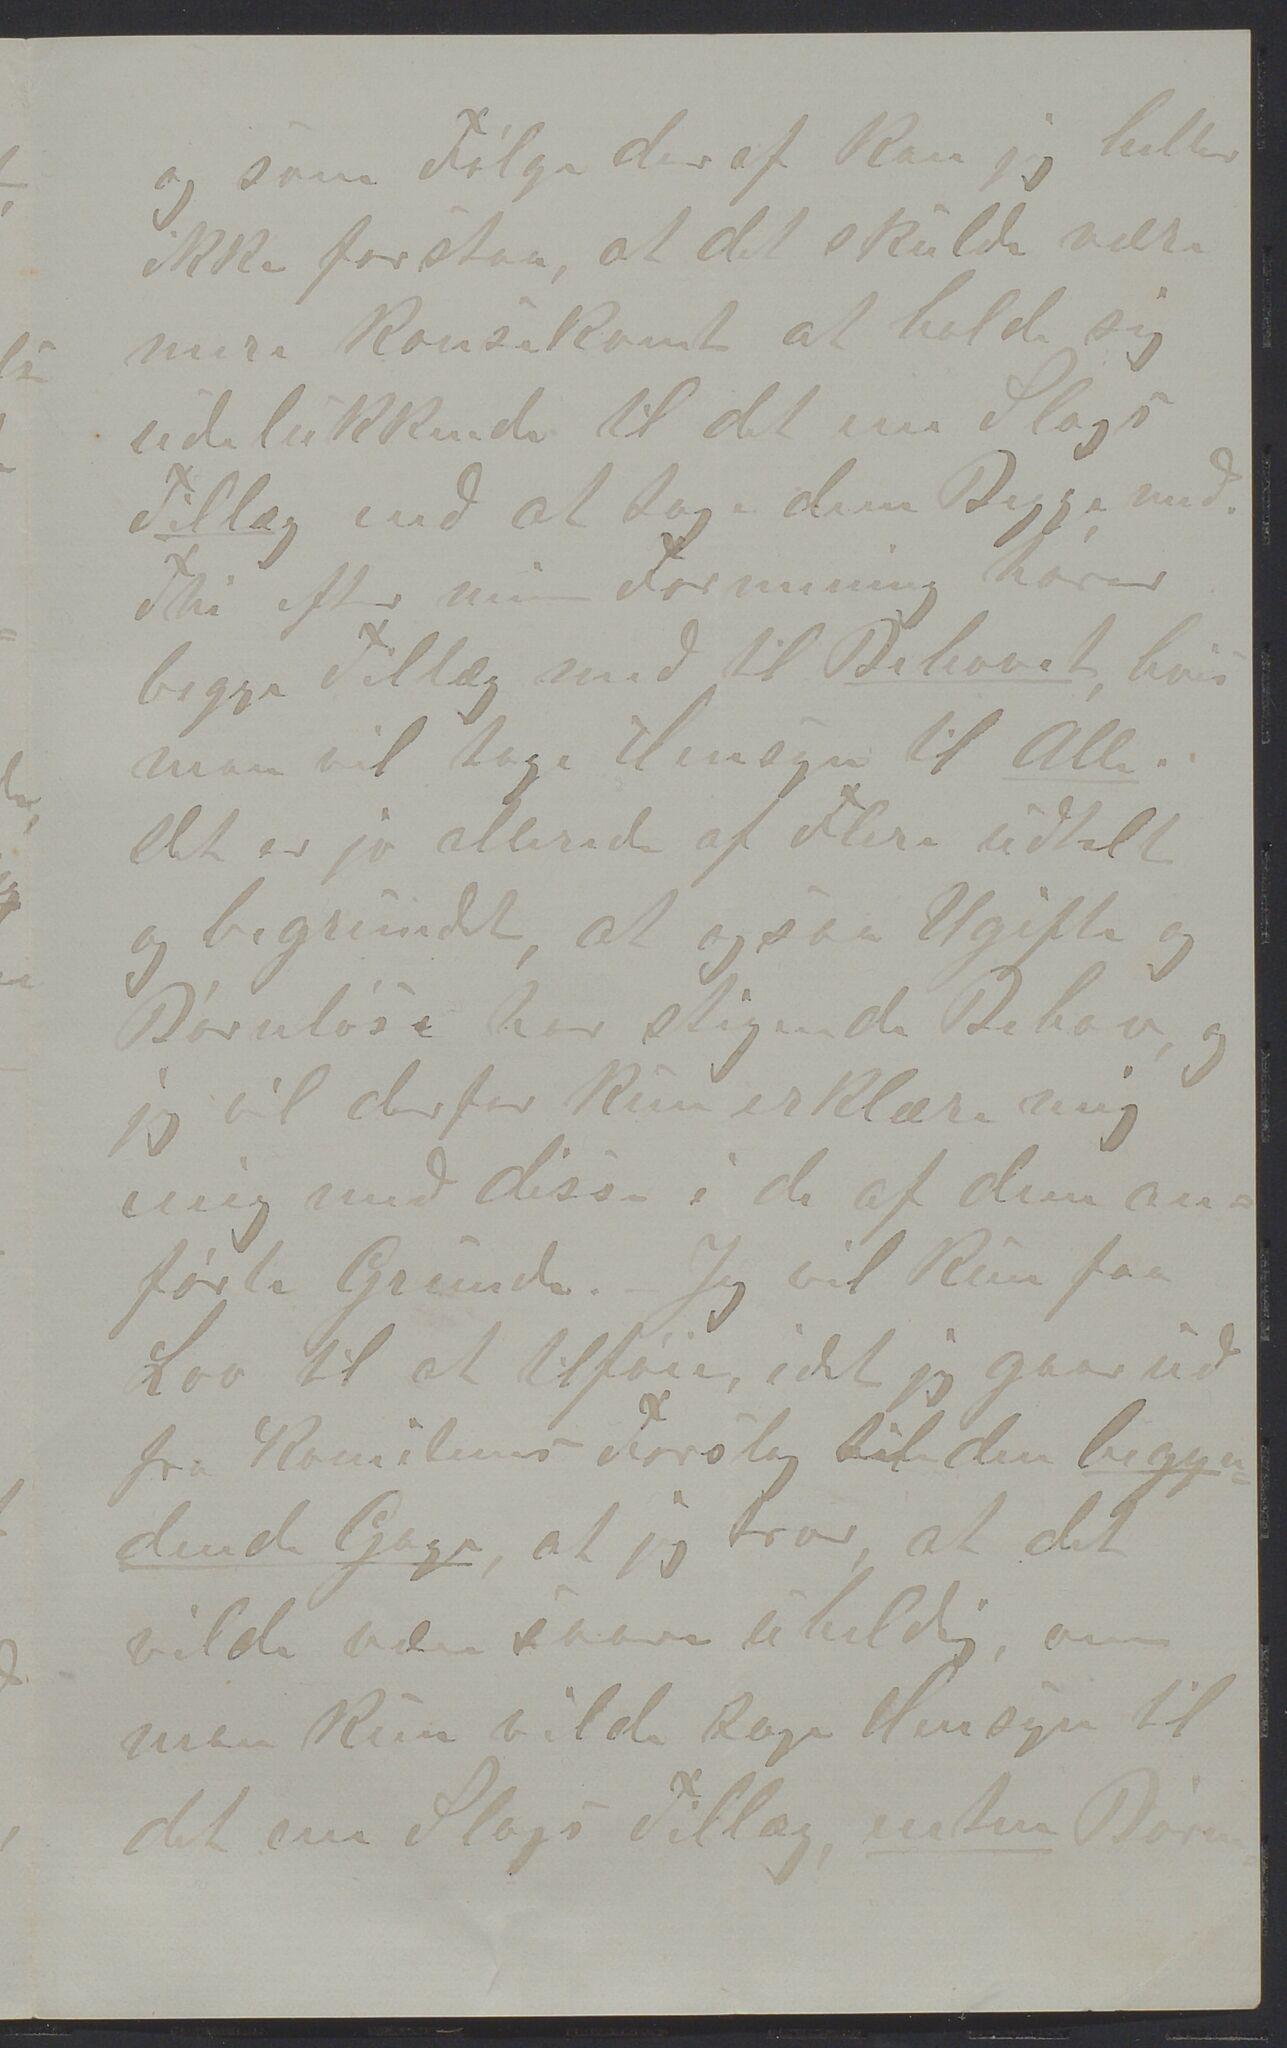 og som Følge deraf kan jeg heller
ikke forstaa, at det skulde være
mere konsekvent at holde sig
udelukkende til det ene Slags
Tillæg end at tage dem Begge med.
Thi efter min Formening hører
begge Tillæg med til Behovet, hvis
man vil tage Hensyn til Alle.
Det er jo allerede af Flere udtalt
og begrundet, at ogsaa Ugifte og
Børnløse har stigende Behov, og
jeg vil derfor kun erklære mig
enig med disse i de af dem an-
førte Grunde. - Jeg vil kun faa
Lov til at tilføie, idet jeg gaar ud
fra Komiteens Forslag til den begyn-
dende Gage, at jeg tror, at det
vilde være saare uheldig, om
man kun vilde tage Hensyn til
det ene Slags Tillæg, enten Børne-